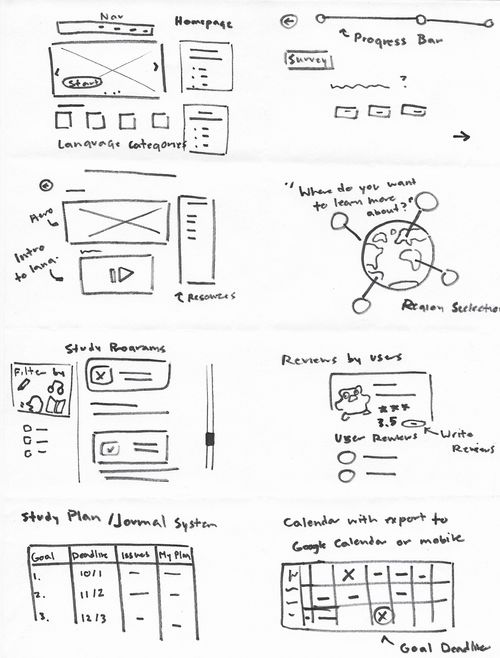 Nav
Homepage
Start
Language Categories
Progress Bar
Survey
?
Hero
Intro
to lang.
Resources
"Where do you want
to learn more
about?"
Region Selection
Study Programs
Filter by
Reviews by Users
3.5
User Reviews
Write
Reviews
Study Plan /Journal System
Goal Deadline Issues My Plan
1. 10/1
2. 11/2
3. 12/3
Calendar with export to
Google Calendar or mobile
Goal Deadline